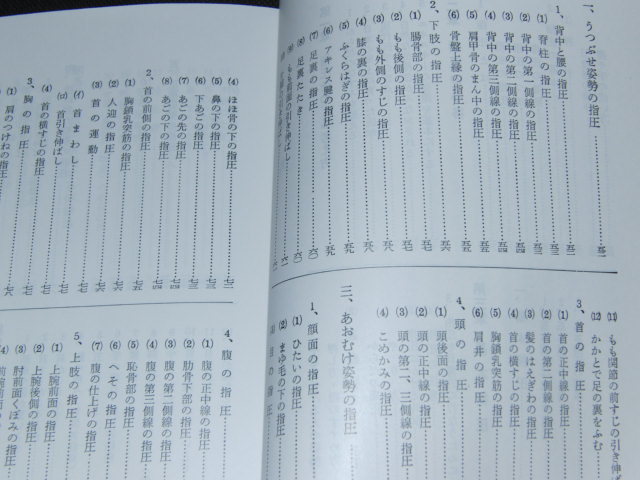 一、うつぶせ姿勢の指圧……五一
1、背中と腰の指圧……五二
(1) 脊柱の指圧……五二
(2) 背中の第一側線の指圧……五三
(3) 背中の第二側線の指圧……五四
(4) 背中の第三側線の指圧……五四
(5) 肩甲骨のまん中の指圧……五五
(6) 骨盤上縁の指圧……五六
2、下肢の指圧……五七
(1) 腸骨部の指圧……五七
(2) もも後側の指圧……五七
(3) もも外側のすじの指圧……五八
(4) 膝の裏の指圧……五八
(5) ふくらはぎの指圧……五九
(6) アキレス腱の指圧……五九
(7) 足裏の指圧……六〇
(8) 足裏たたき……六〇
(9) もも前面の引き伸ばし……六一
(11) もも関節の前すじの引き伸ば
(12) かかとで足の裏をふむ
3、首の指圧
(1) 首の正中線の指圧
(2) 首の第一側線の指圧
(3) 髪のはえぎわの指圧
(4) 首の横すじの指圧
(5) 胸鎖乳突筋の指圧
(6) 肩井の指圧
4、頭の指圧
(1) 頭後面の指圧
(2) 頭の正中線の指圧
(3) 頭の第二、三側線の指圧
(4) こめかみの指圧
三、あおむけ姿勢の指圧
1、顔面の指圧
(1) ひたいの指圧
(2) まゆ毛の下の指圧
(4) ほほ骨の下の指圧……七二
(5) 鼻の下の指圧……七二
(6) 下あごの指圧……七三
(7) あごの先の指圧……七三
(8) あごの下の指圧……七三
2、首の前側の指圧……七四
(1) 胸鎖乳突筋の指圧……七四
(2) 人迎の指圧……七五
(3) 首の運動……七六
(イ) 首まわし……七六
(ロ) 首引き伸ばし……七七
(4) 首の横すじの指圧……七七
3、胸の指圧……七八
(1) 肩のつけねの指圧……七八
4、腹の指圧
(1) 腹の正中線の指圧
(2) 肋骨下部の指圧
(3) 腹の第一側線の指圧
(4) 腹の第二側線の指圧
(5) 恥骨部の指圧
(6) へその指圧
(7) 腹の仕上げの指圧
5、上肢の指圧
(1) 上腕前面の指圧
(2) 上腕後側の指圧
(3) 肘前面くぼみの指圧
(4) 前腕前面の